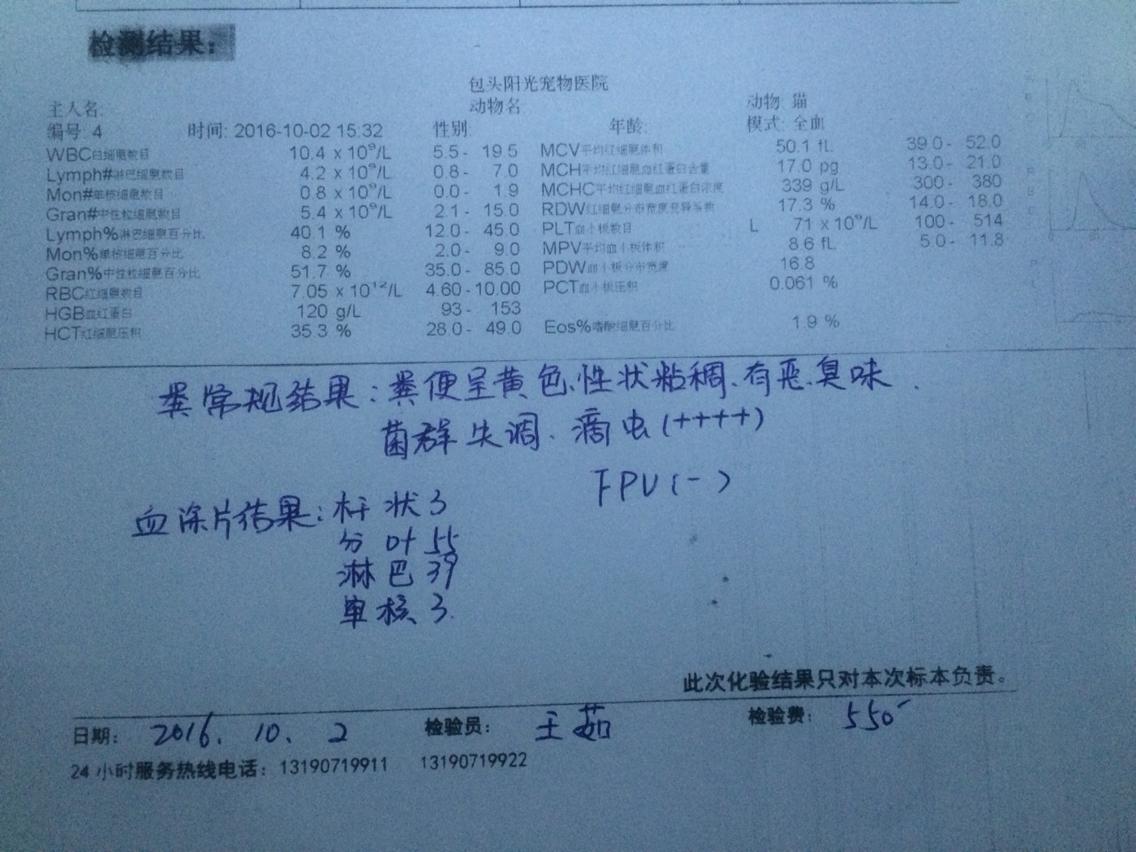 检测结果：
包头阳光宠物医院
主人名: 动物名: 动物: 猫
编号: 4 时间: 2016-10-02 15:32 性别: 年龄: 模式: 全血
WBC白细胞数目 10.4 x 10⁹/L 5.5- 19.5 MCV平均红细胞体积 50.1 fL 39.0- 52.0
Lymph#淋巴细胞数目 4.2 x 10⁹/L 0.8- 7.0 MCH平均红细胞血红蛋白含量 17.0 pg 13.0- 21.0
Mon#单核细胞数目 0.8 x 10⁹/L 0.0- 1.9 MCHC平均红细胞血红蛋白浓度 339 g/L 300- 380
Gran#中性粒细胞数目 5.4 x 10⁹/L 2.1- 15.0 RDW红细胞分布宽度变异系数 17.3 % 14.0- 18.0
Lymph%淋巴细胞百分比 40.1 % 12.0- 45.0 PLT血小板数目 L 71 x 10⁹/L 100- 514
Mon%单核细胞百分比 8.2 % 2.0- 9.0 MPV平均血小板体积 8.6 fL 5.0- 11.8
Gran%中性粒细胞百分比 51.7 % 35.0- 85.0 PDW血小板分布宽度 16.8
RBC红细胞数目 7.05 x 10¹²/L 4.60- 10.00 PCT血小板压积 0.061 %
HGB血红蛋白 120 g/L 93- 153
HCT红细胞压积 35.3 % 28.0- 49.0 Eos%嗜酸细胞百分比 1.9 %
粪常规结果：粪便呈黄色、性状粘稠、有恶臭味.
菌群失调、滴虫(++++)
FPV(-)
血涂片结果：杆状3
分叶55
淋巴39
单核3.
此次化验结果只对本次标本负责。
日期：2016. 10. 2 检验员：王茹 检验费：550
24小时服务热线电话：13190719911 13190719922